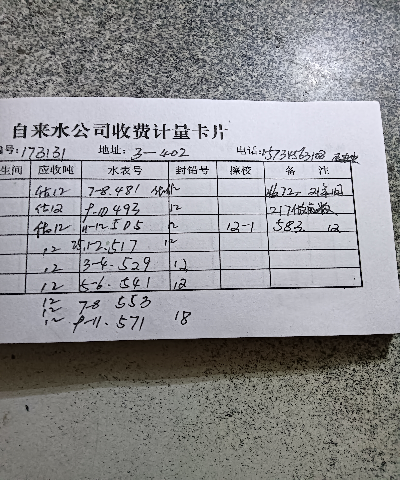 自来水公司收费计量卡片
编号:173131 地址: 3-402 电话:
生间 应收吨 水表号 封铅号 换校 备 注
估12 7-8.481 12
估12 9-10 493 12
估12 11-12.505 12 12-1 583 12
12 25.1-2.517 12
12 3-4.529 12
12 5-6.541 12
12 7-8 553
12 9-11.571 18